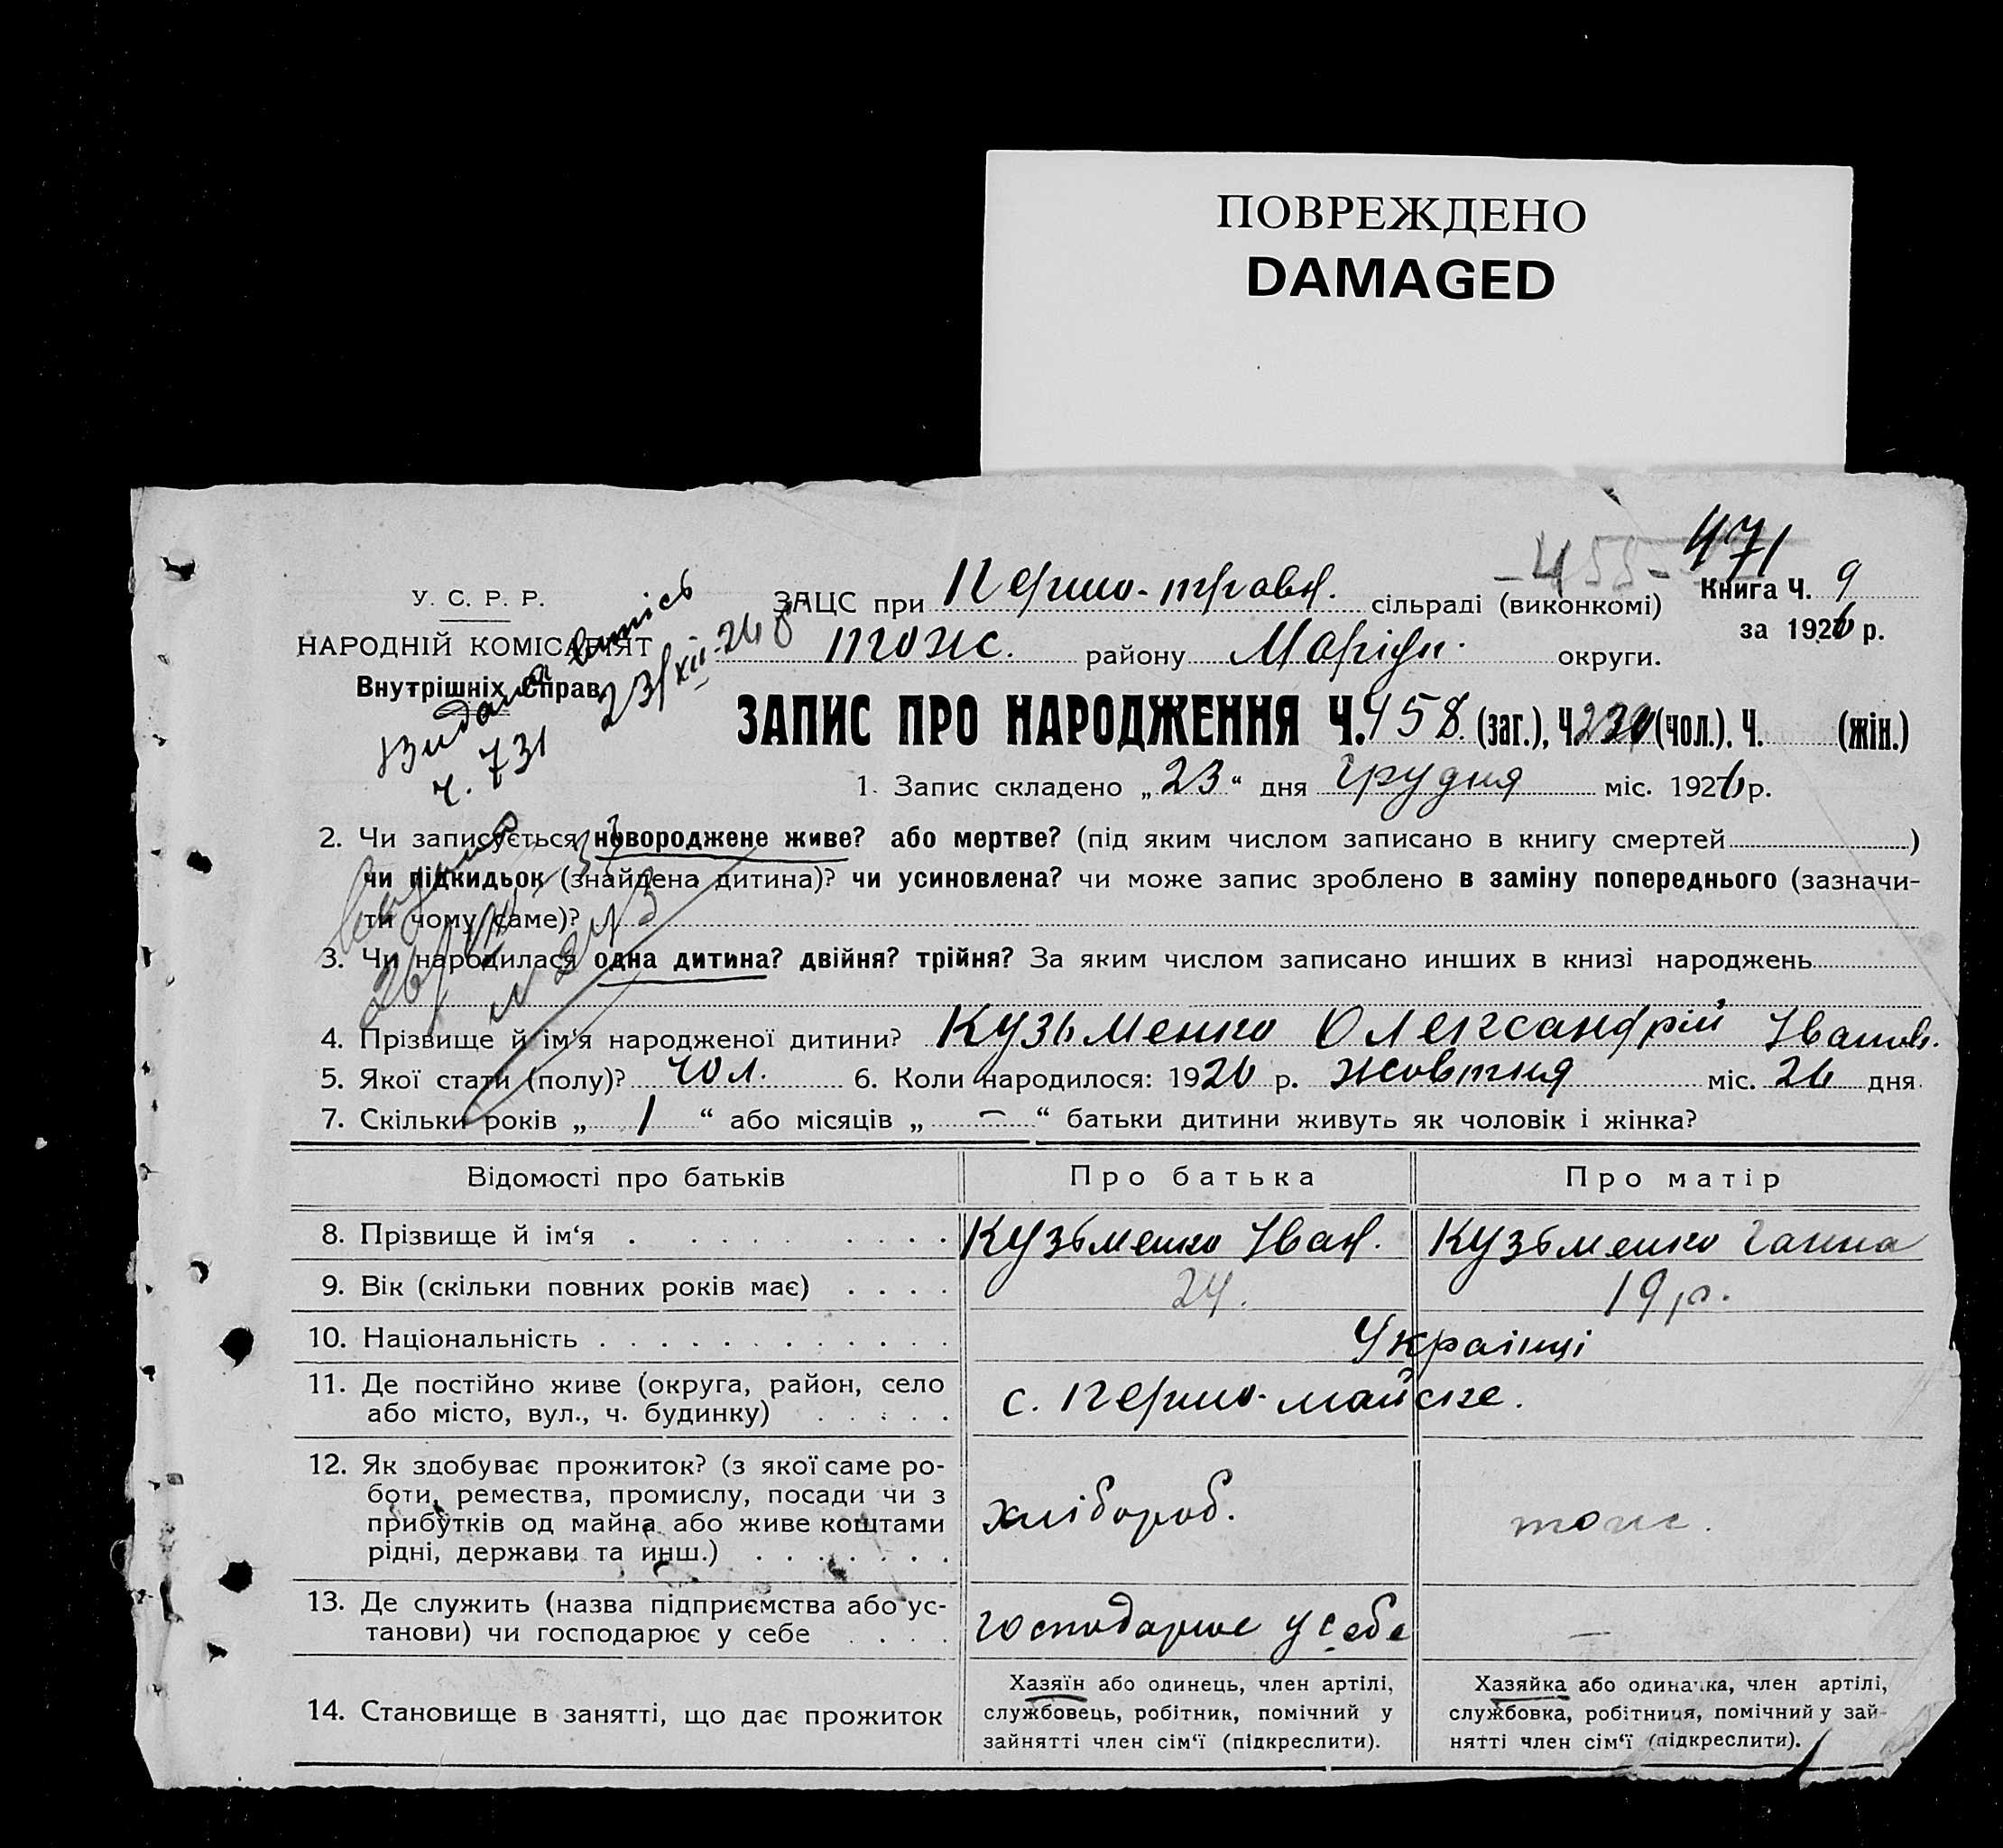 ПОВРЕЖДЕНО
DAMAGED
455-
471
У. С. Р. Р.
НАРОДНІЙ КОМІСАРІЯТ
Внутрішніх Справ
Видана випись
ч. 731 23/XII-26 р
ЗАЦС при Першо-травн. сільраді (виконкомі) Книга Ч. 9
за 1926 р.
тож. району Маріуп. округи.
ЗАПИС ПРО НАРОДЖЕННЯ Ч. 458. (заг.), Ч. (чол.). Ч. (жін.)
1. Запис складено „23“ дня Грудня міс. 1926 р.
2. Чи записується новороджене живе? або мертве? (під яким числом записано в книгу смертей )
чи підкидьок (знайдена дитина)? чи усиновлена? чи може запис зроблено в заміну попереднього (зазначи-
ти чому саме)?
3. Чи народилася одна дитина? двійня? трійня? За яким числом записано инших в книзі народжень
4. Прізвище й ім'я народженої дитини? Кузьменко Олександрій Іванов.
5. Якої стати (полу)? чол. 6. Коли народилося: 1926 р. жовтня міс. 26 дня
7. Скільки років „1“ або місяців „—“ батьки дитини живуть як чоловік і жінка?
Відомості про батьків Про батька Про матір
8. Прізвище й ім'я Кузьменко Іван. Кузьменко Ганна
9. Вік (скільки повних років має) 24. 19 р.
10. Національність Українці
11. Де постійно живе (округа, район, село
або місто, вул., ч. будинку) с. Першо-майське.
12. Як здобуває прожиток? (з якої саме ро-
боти, ремества, промислу, посади чи з
прибутків од майна або живе коштами
рідні, держави та инш.) хлібороб. тож.
13. Де служить (назва підприємства або ус-
танови) чи господарює у себе господарює у себе —
14. Становище в занятті, що дає прожиток
Хазяїн або одинець, член артілі,
службовець, робітник, помічний у
зайнятті член сім'ї (підкреслити).
Хазяйка або одиначка, член артілі,
службовка, робітниця, помічний у зай-
нятті член сім'ї (підкреслити).